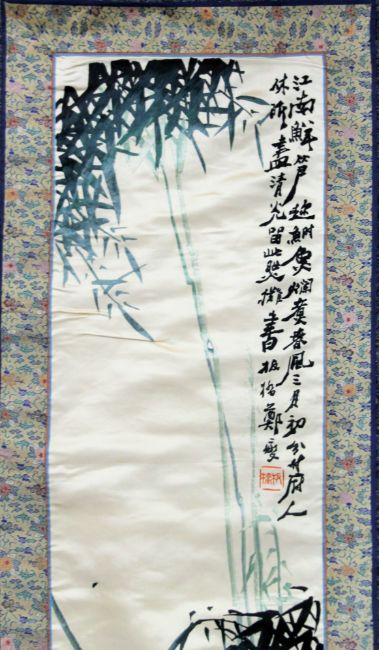 江南鮮笋趂鰣魚爛煑春風三月初分付厨人
休斫盡清光留此照攤書板橋鄭燮